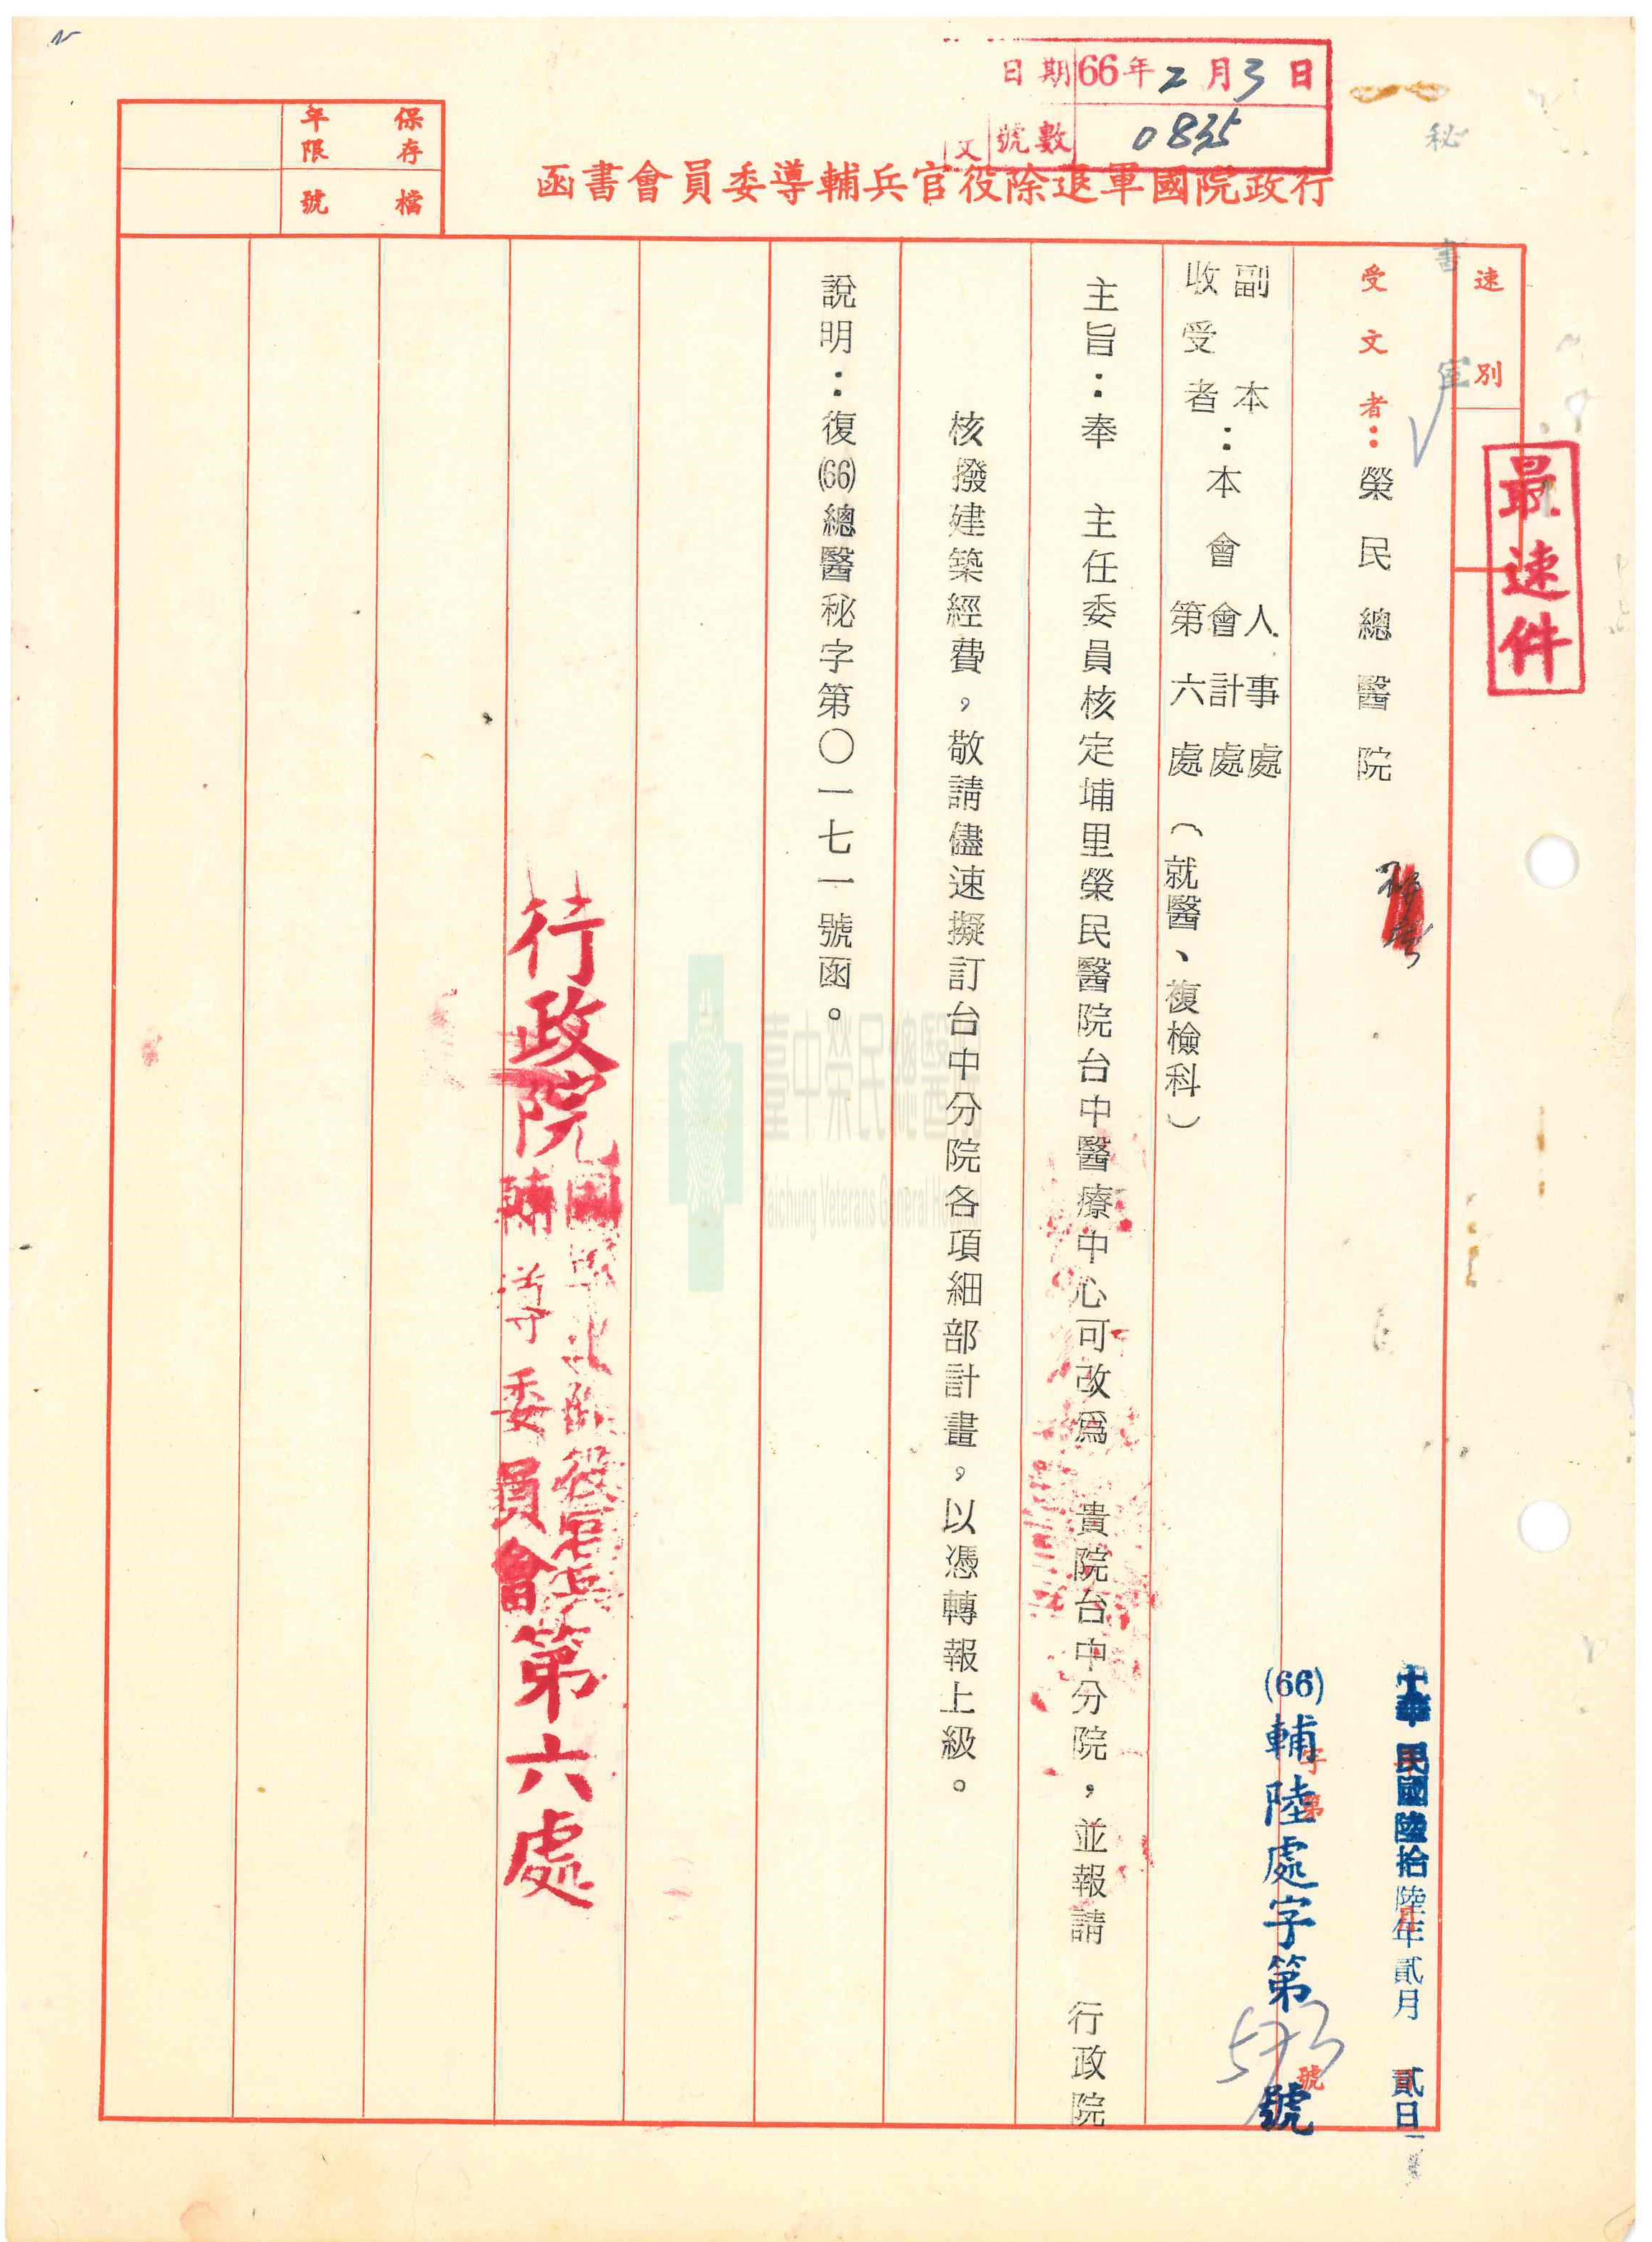 日期 66年2月3日
文 號數 0835
行政院國軍退除役官兵輔導委員會書函
保存年限
檔號
速別
最速件
秘書室
受文者：榮民總醫院
中華民國陸拾陸年貳月貳日
(66)輔陸處字第573號
副本收受者：本會人事處 會計處 第六處（就醫、複檢科）
主旨：奉 主任委員核定埔里榮民醫院台中醫療中心可改爲 貴院台中分院，並報請 行政院
核撥建築經費，敬請儘速擬訂台中分院各項細部計畫，以憑轉報上級。
說明：復(66)總醫秘字第〇一七一號函。
行政院國軍退除役官兵輔導委員會第六處
臺中榮民總醫院
Taichung Veterans General Hospital